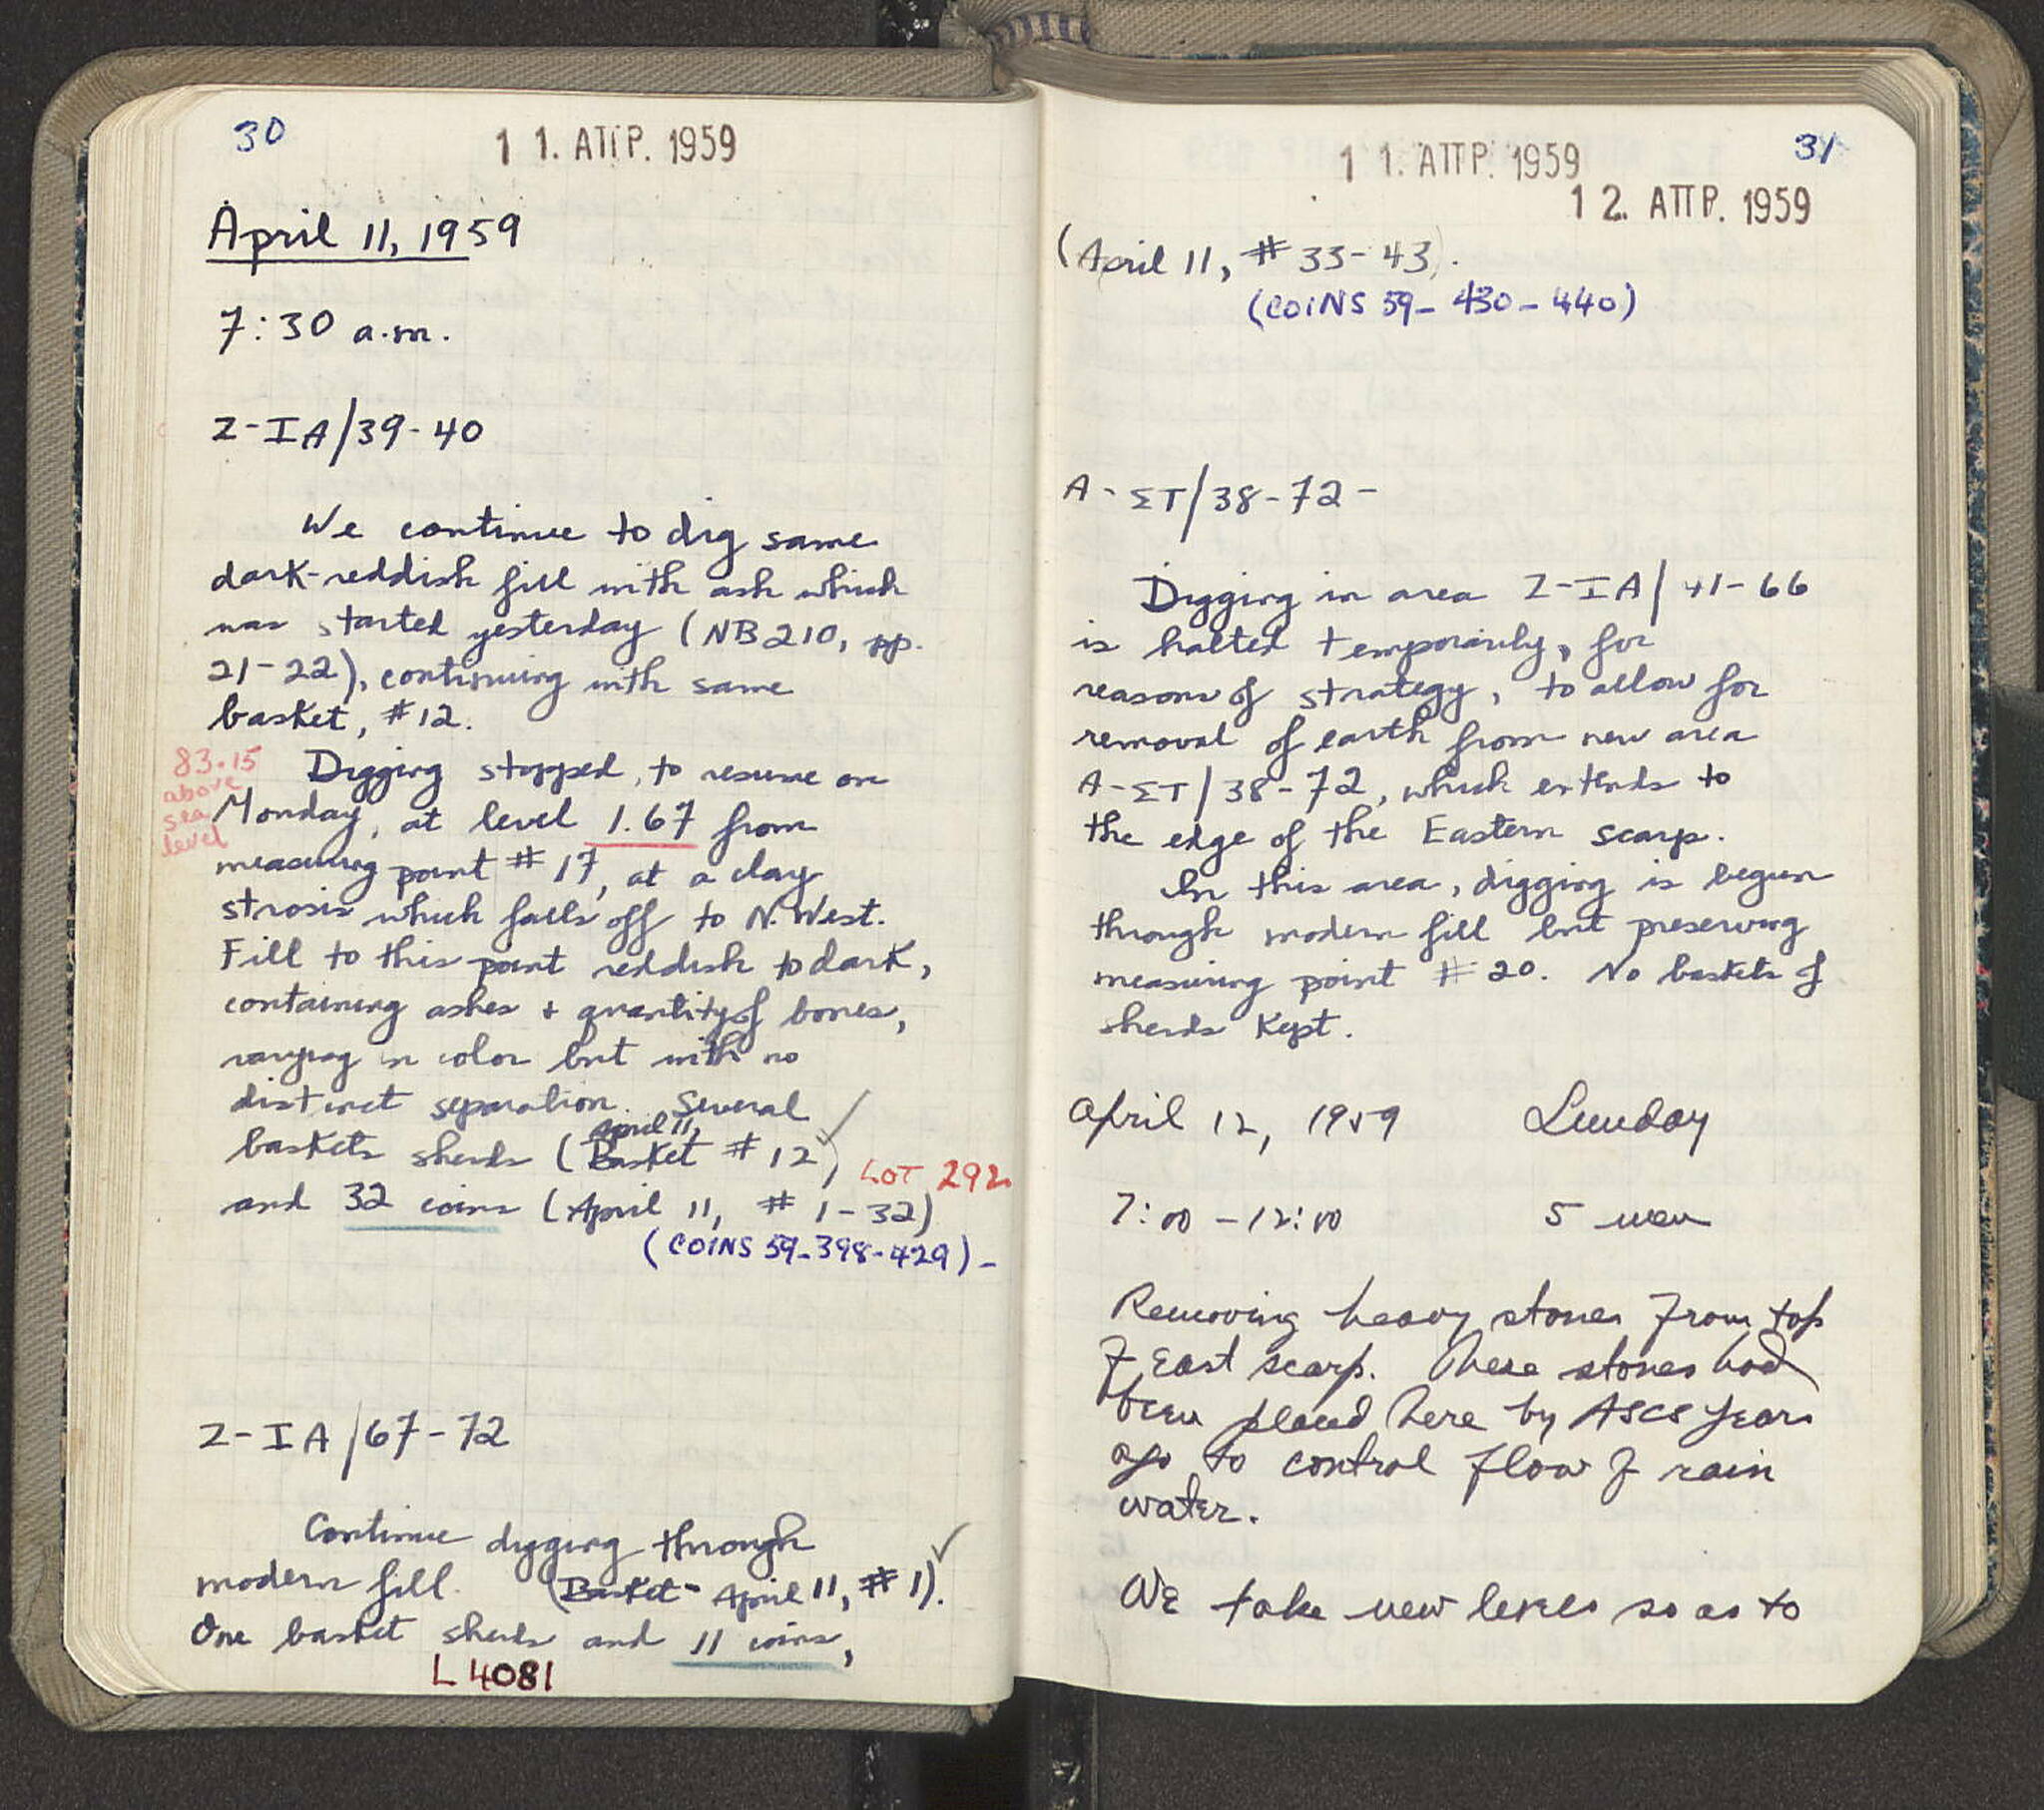 30
11. ΑΠΡ. 1959
April 11, 1959
7:30 a.m.
Z-IA/39-40
We continue to dig same
dark-reddish fill with ash which
was started yesterday (NB 210, pp.
21-22), continuing with same
basket, #12.
83.15
above
sea
level
Digging stopped, to resume on
Monday, at level 1.67 from
measuring point #17, at a clay
strosis which falls off to N. West.
Fill to this point reddish to dark,
containing ashes + quantity of bones,
varying in color but with no
distinct separation. Several
april 11,
baskets sherds (Basket #12) ✓
LOT 292
and 32 coins (April 11, # 1-32)
(COINS 59-398-429)-
Z-IA/67-72
Continue digging through
modern fill. (Basket- April 11, #1). ✓
One basket sherds and 11 coins,
L 4081
31
11. ΑΠΡ. 1959
12. ΑΠΡ. 1959
(April 11, # 33-43).
(COINS 59-430-440)
A-ΣT/38-72-
Digging in area Z-IA/41-66
is halted temporarily, for
reasons of strategy, to allow for
removal of earth from new area
A-ΣT/38-72, which extends to
the edge of the Eastern scarp.
In this area, digging is begun
through modern fill but preserving
measuring point #20. No baskets of
sherds kept.
April 12, 1959 Sunday
7:00-12:00 5 men
Removing heavy stones from top
of East scarp. These stones had
been placed here by ASCS years
ago to control flow of rain
water.
We take new levels so as to